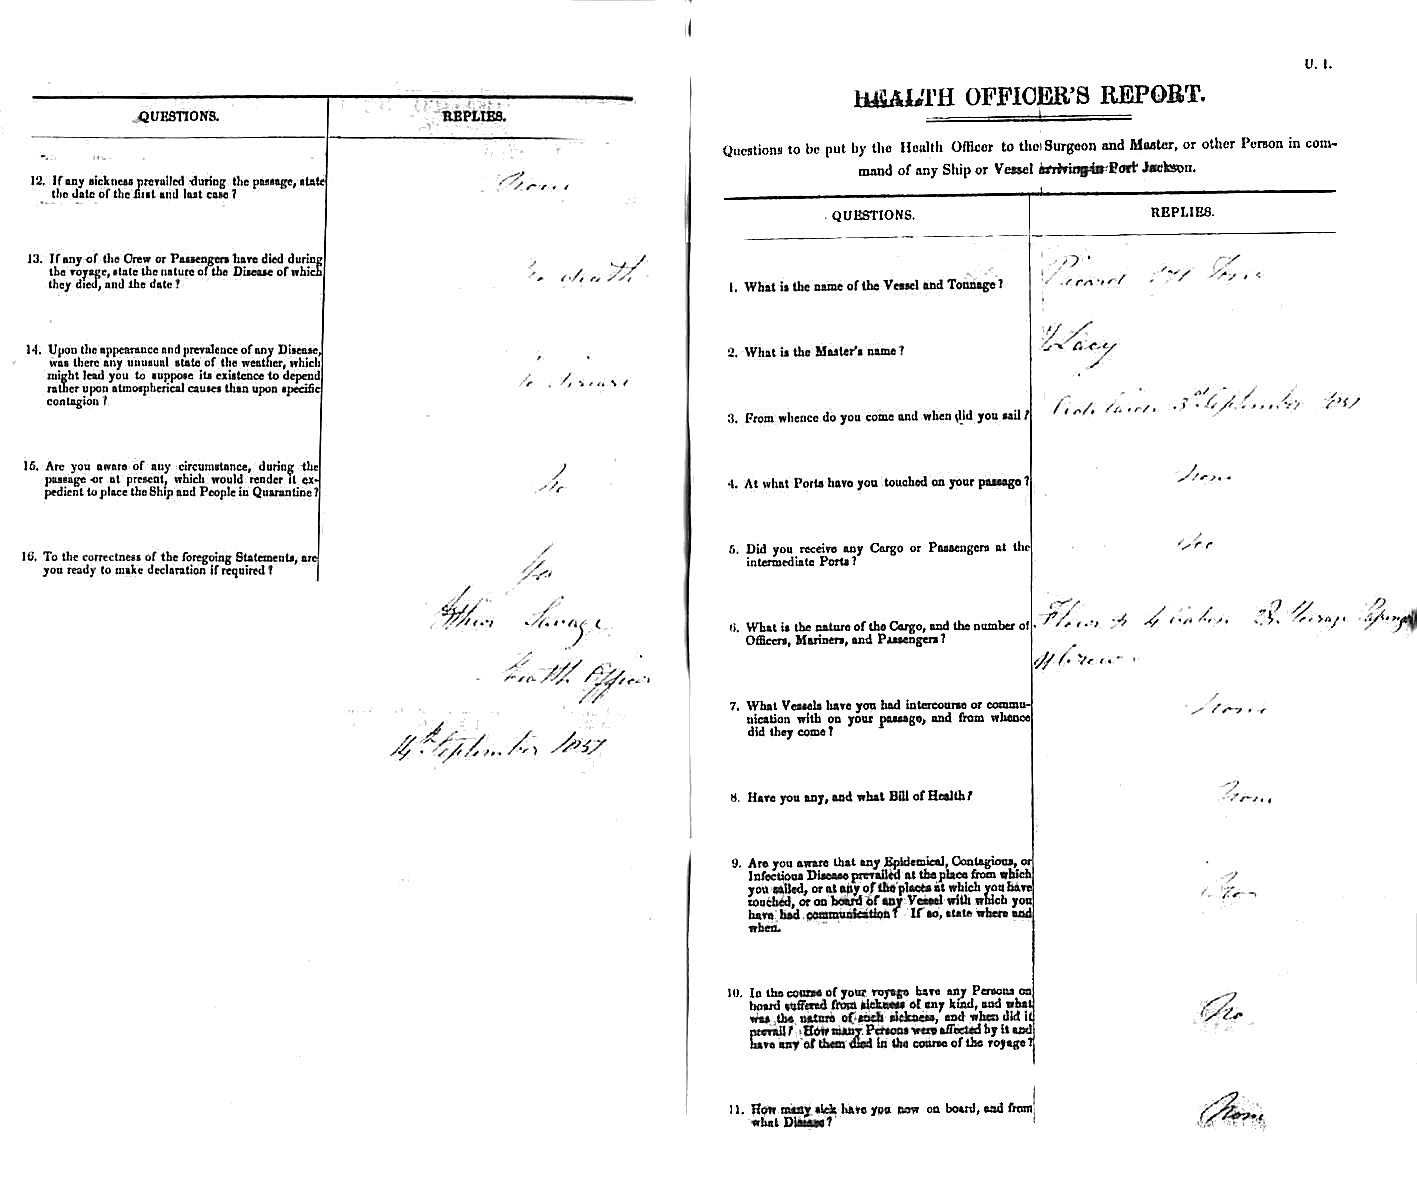 QUESTIONS.
REPLIES.
12. If any sickness prevailed during the passage, state
the date of the first and last case?
None
13. If any of the Crew or Passengers have died during
the voyage, state the nature of the Disease of which
they died, and the date?
No death
14. Upon the appearance and prevalence of any Disease,
was there any unusual state of the weather, which
might lead you to suppose its existence to depend
rather upon atmospherical causes than upon specific
contagion?
No disease
15. Are you aware of any circumstance, during the
passage or at present, which would render it ex-
pedient to place the Ship and People in Quarantine?
No
16. To the correctness of the foregoing Statements, are
you ready to make declaration if required?
Yes
Arthur Savage
Health Officer
14th September 1857
U. 1.
HEALTH OFFICER'S REPORT.
Questions to be put by the Health Officer to the Surgeon and Master, or other Person in com-
mand of any Ship or Vessel arriving in Port Jackson.
QUESTIONS.
REPLIES.
1. What is the name of the Vessel and Tonnage?
Picard Tons
2. What is the Master's name?
Lacy
3. From whence do you come and when did you sail?
Adelaide 3rd September 1857
4. At what Ports have you touched on your passage?
None
5. Did you receive any Cargo or Passengers at the
intermediate Ports?
6. What is the nature of the Cargo, and the number of
Officers, Mariners, and Passengers?
Flour & 4 Cabin 23 Steerage
11 Crew
7. What Vessels have you had intercourse or commu-
nication with on your passage, and from whence
did they come?
None
8. Have you any, and what Bill of Health?
None
9. Are you aware that any Epidemical, Contagious, or
Infectious Disease prevailed at the place from which
you sailed, or at any of the places at which you have
touched, or on board of any Vessel with which you
have had communication? If so, state where and
when.
10. In the course of your voyage have any Persons on
board suffered from sickness of any kind, and what
was the nature of such sickness, and when did it
prevail? How many Persons were affected by it and
have any of them died in the course of the voyage?
No
11. How many sick have you now on board, and from
what Disease?
None